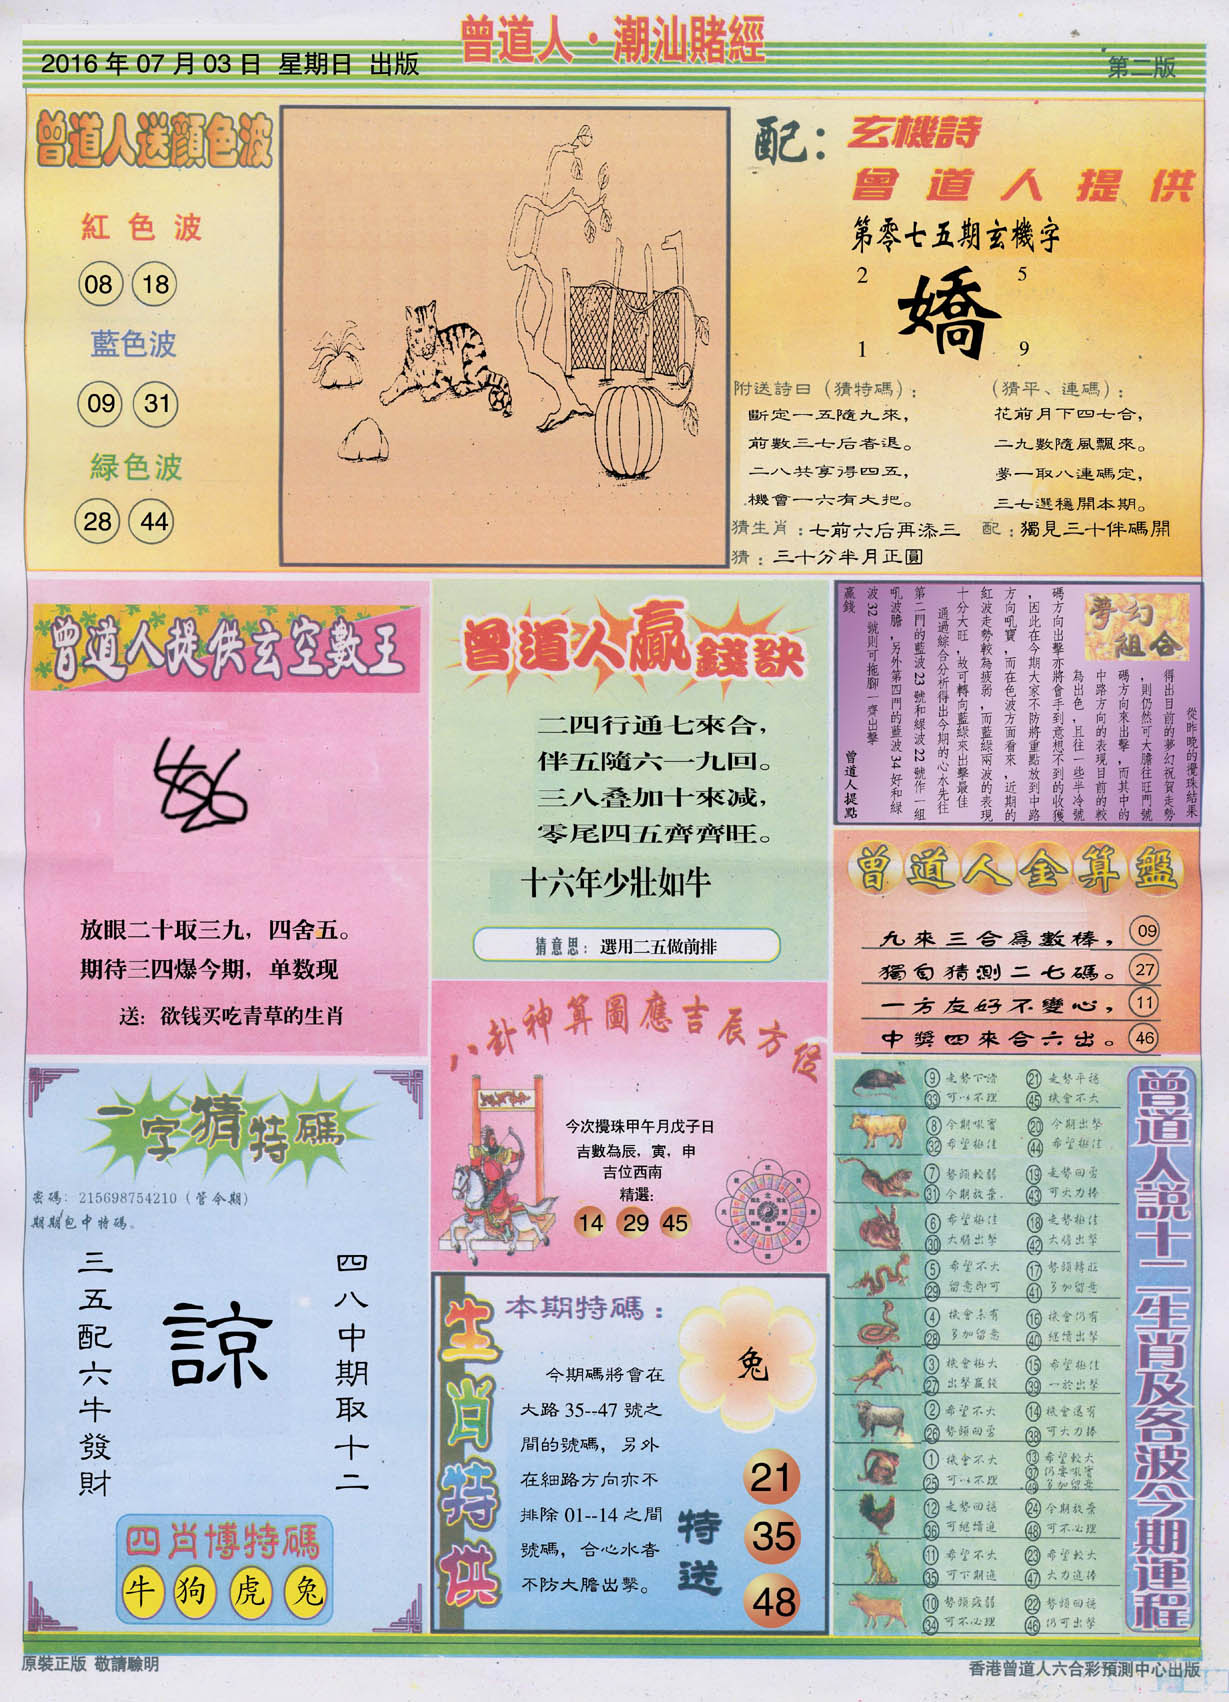 曾道人·潮汕賭經
2016年07月03日 星期日 出版
第二版
曾道人送顏色波
紅色波
08 18
藍色波
09 31
緑色波
28 44
配：玄機詩
曾道人提供
第零七五期玄機字
2 5
嬌
1 9
附送詩曰（猜特碼）：
斷定一五隨九來，
前數三七后者退。
二八共享得四五，
機會一六有大把。
（猜平、連碼）：
花前月下四七合，
二九數隨風飄來。
夢一取八連碼定，
三七選穩開本期。
猜生肖：七前六后再添三
配：獨見三十伴碼開
猜：三十分半月正圓
曾道人提供玄空數王
放眼二十取三九，四舍五。
期待三四爆今期，单数现
送：欲钱买吃青草的生肖
曾道人贏錢訣
二四行通七來合，
伴五隨六一九回。
三八叠加十來减，
零尾四五齊齊旺。
十六年少壯如牛
猜意思：選用二五做前排
夢幻組合
從昨晚的攪珠結果
得出目前的夢幻祝賀走勢
，則仍然可大膽往旺門號
碼方向來出擊，而其中的
中路方向的表現目前的較
為出色，且往一些半冷號
碼方向出擊亦將會手到意想不到的收獲
，因此在今期大家不防將重點放到中路
方向吼寶，而在色波方面看來，近期的
紅波走勢較為疲弱，而藍綠兩波的表現
十分大旺，故可轉向藍綠來出擊最佳
通過綜合分析得出今期的心水先往
第二門的藍波23號和綠波22號作一組
吼波膽，另外第四門的藍波34好和綠
波32號則可拖腳一齊出擊
贏錢
曾道人提點
曾道人金算盤
九來三合爲數棒， 09
獨自猜測二七碼。 27
一方友好不變心， 11
中獎四來合六出。 46
八卦神算圖應吉辰方位
今次攪珠甲午月戊子日
吉數為辰，寅，申
吉位西南
精選：
14 29 45
一字猜特碼
密碼：215698754210（管令期）
期期包中特碼。
四八中期取十二
諒
三五配六牛發財
四肖博特碼
牛 狗 虎 兔
生肖特供
本期特碼：
兔
今期碼將會在
大路35--47號之
間的號碼，另外
在細路方向亦不
排除01--14之間
號碼，合心水者
不防大膽出擊。
特送
21
35
48
曾道人說十二生肖及各波今期運程
⑨ 走勢下滑 ㉑ 走勢平穩
㉝ 可以不理 ㊺ 機會不大
⑧ 今期吼寶 ⑳ 今期出擊
㉜ 希望極佳 ㊹ 希望極佳
⑦ 勢頭較弱 ⑲ 走勢回勇
㉛ 今期放棄 ㊸ 可大力捧
⑥ 希望極佳 ⑱ 走勢極佳
㉚ 大膽出擊 ㊷ 大膽出擊
⑤ 希望不大 ⑰ 勢頭轉旺
㉙ 留意即可 ㊶ 多加留意
④ 機會未有 ⑯ 機會仍有
㉘ 多加留意 ㊵ 繼續出擊
③ 機會極大 ⑮ 希望極佳
㉗ 出擊贏錢 ㊴ 一於出擊
② 希望不大 ⑭ 機會還有
㉖ 勢頭回勇 ㊳ 可大力捧
① 機會不大 ⑬ 希望較大
㉕ 可以不理 ㊲ 仍要吼寶
㊾ 多加留意
⑫ 走勢回穩 ㉔ 今期放棄
㊱ 可繼續追 ㊽ 可不必理
⑪ 希望不大 ㉓ 希望較大
㉟ 可下期追 ㊼ 大力追捧
⑩ 勢頭疲弱 ㉒ 勢頭回穩
㉞ 可不必理 ㊻ 仍可出擊
原裝正版 敬請驗明
香港曾道人六合彩預測中心出版